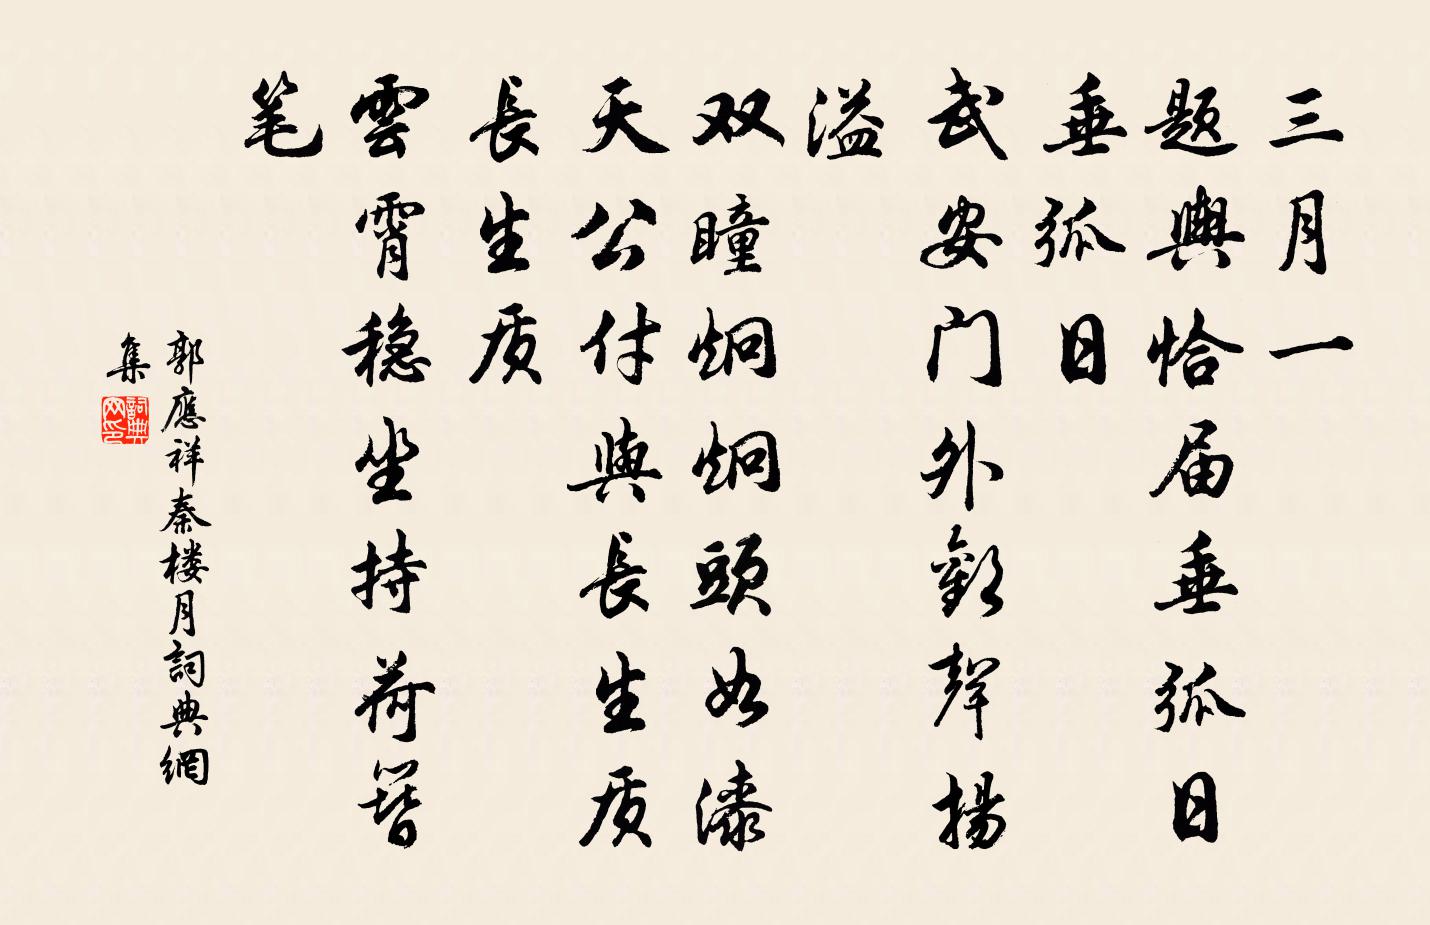 三月一
题輿恰届垂弧日
垂弧日
武安门外歡聲揚
溢
双瞳炯炯頭如漆
天公付與長生质
長生质
雲霄稳坐持荷簪
笔
郭應祥秦楼月詞典網
集
詞典网印